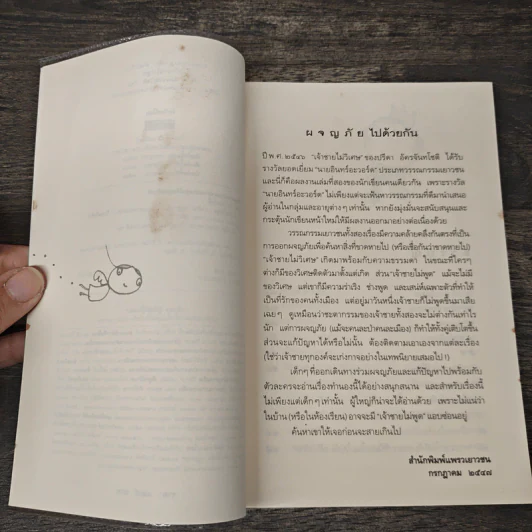 ผจญภัยไปด้วยกัน
ปี พ.ศ. ๒๕๔๖ "เจ้าชายไม่วิเศษ" ของปรีดา อัครจันทโชติ ได้รับ
รางวัลยอดเยี่ยม "นายอินทร์อะวอร์ด" ประเภทวรรณกรรมเยาวชน
และนี่ก็คือผลงานเล่มที่สองของนักเขียนคนเดียวกัน เพราะรางวัล
"นายอินทร์อะวอร์ด" ไม่เพียงแต่จะเฟ้นหาวรรณกรรมที่ดีมานำเสนอ
ผู้อ่านในกลุ่มและอายุต่างๆ เท่านั้น หากยังมุ่งมั่นจะสนับสนุนและ
กระตุ้นนักเขียนหน้าใหม่ให้มีผลงานออกมาอย่างต่อเนื่องด้วย
วรรณกรรมเยาวชนทั้งสองเรื่องมีความคล้ายคลึงกันตรงที่เป็น
การออกผจญภัยเพื่อค้นหาสิ่งที่ขาดหายไป (หรือเชื่อกันว่าขาดหายไป)
"เจ้าชายไม่วิเศษ" เกิดมาพร้อมกับความธรรมดา ในขณะที่ใครๆ
ต่างก็มีของวิเศษติดตัวมาตั้งแต่เกิด ส่วน "เจ้าชายไม่พูด" แม้จะไม่มี
ของวิเศษ แต่เขาก็มีความร่าเริง ช่างพูด และเสน่ห์เฉพาะตัวที่ทำให้
เป็นที่รักของคนทั้งเมือง แต่อยู่มาวันหนึ่งเจ้าชายก็ไม่พูดขึ้นมาเสีย
เฉยๆ ดูเหมือนว่าชะตากรรมของเจ้าชายทั้งสองจะไม่ต่างกันเท่าไร
นัก แต่การผจญภัย (แม้จะคนละป่าคนละเมือง) ก็ทำให้ทั้งคู่เติบโตขึ้น
ส่วนจะแก้ปัญหาได้หรือไม่นั้น ต้องติดตามเอาเองจากแต่ละเรื่อง
(ใช่ว่าเจ้าชายทุกองค์จะเก่งกาจอย่างในเทพนิยายเสมอไป !)
เด็กๆ ที่ออกเดินทางร่วมผจญภัยและแก้ปัญหาไปพร้อมกับ
ตัวละครจะอ่านเรื่องทำนองนี้ได้อย่างสนุกสนาน และสำหรับเรื่องนี้
ไม่เพียงแต่เด็กๆ เท่านั้น ผู้ใหญ่ก็น่าจะได้อ่านด้วย เพราะไม่แน่ว่า
ในบ้าน (หรือในห้องเรียน) อาจจะมี "เจ้าชายไม่พูด" แอบซ่อนอยู่
ค้นหาเขาให้เจอก่อนจะสายเกินไป
สำนักพิมพ์แพรวเยาวชน
กรกฎาคม ๒๕๔๗